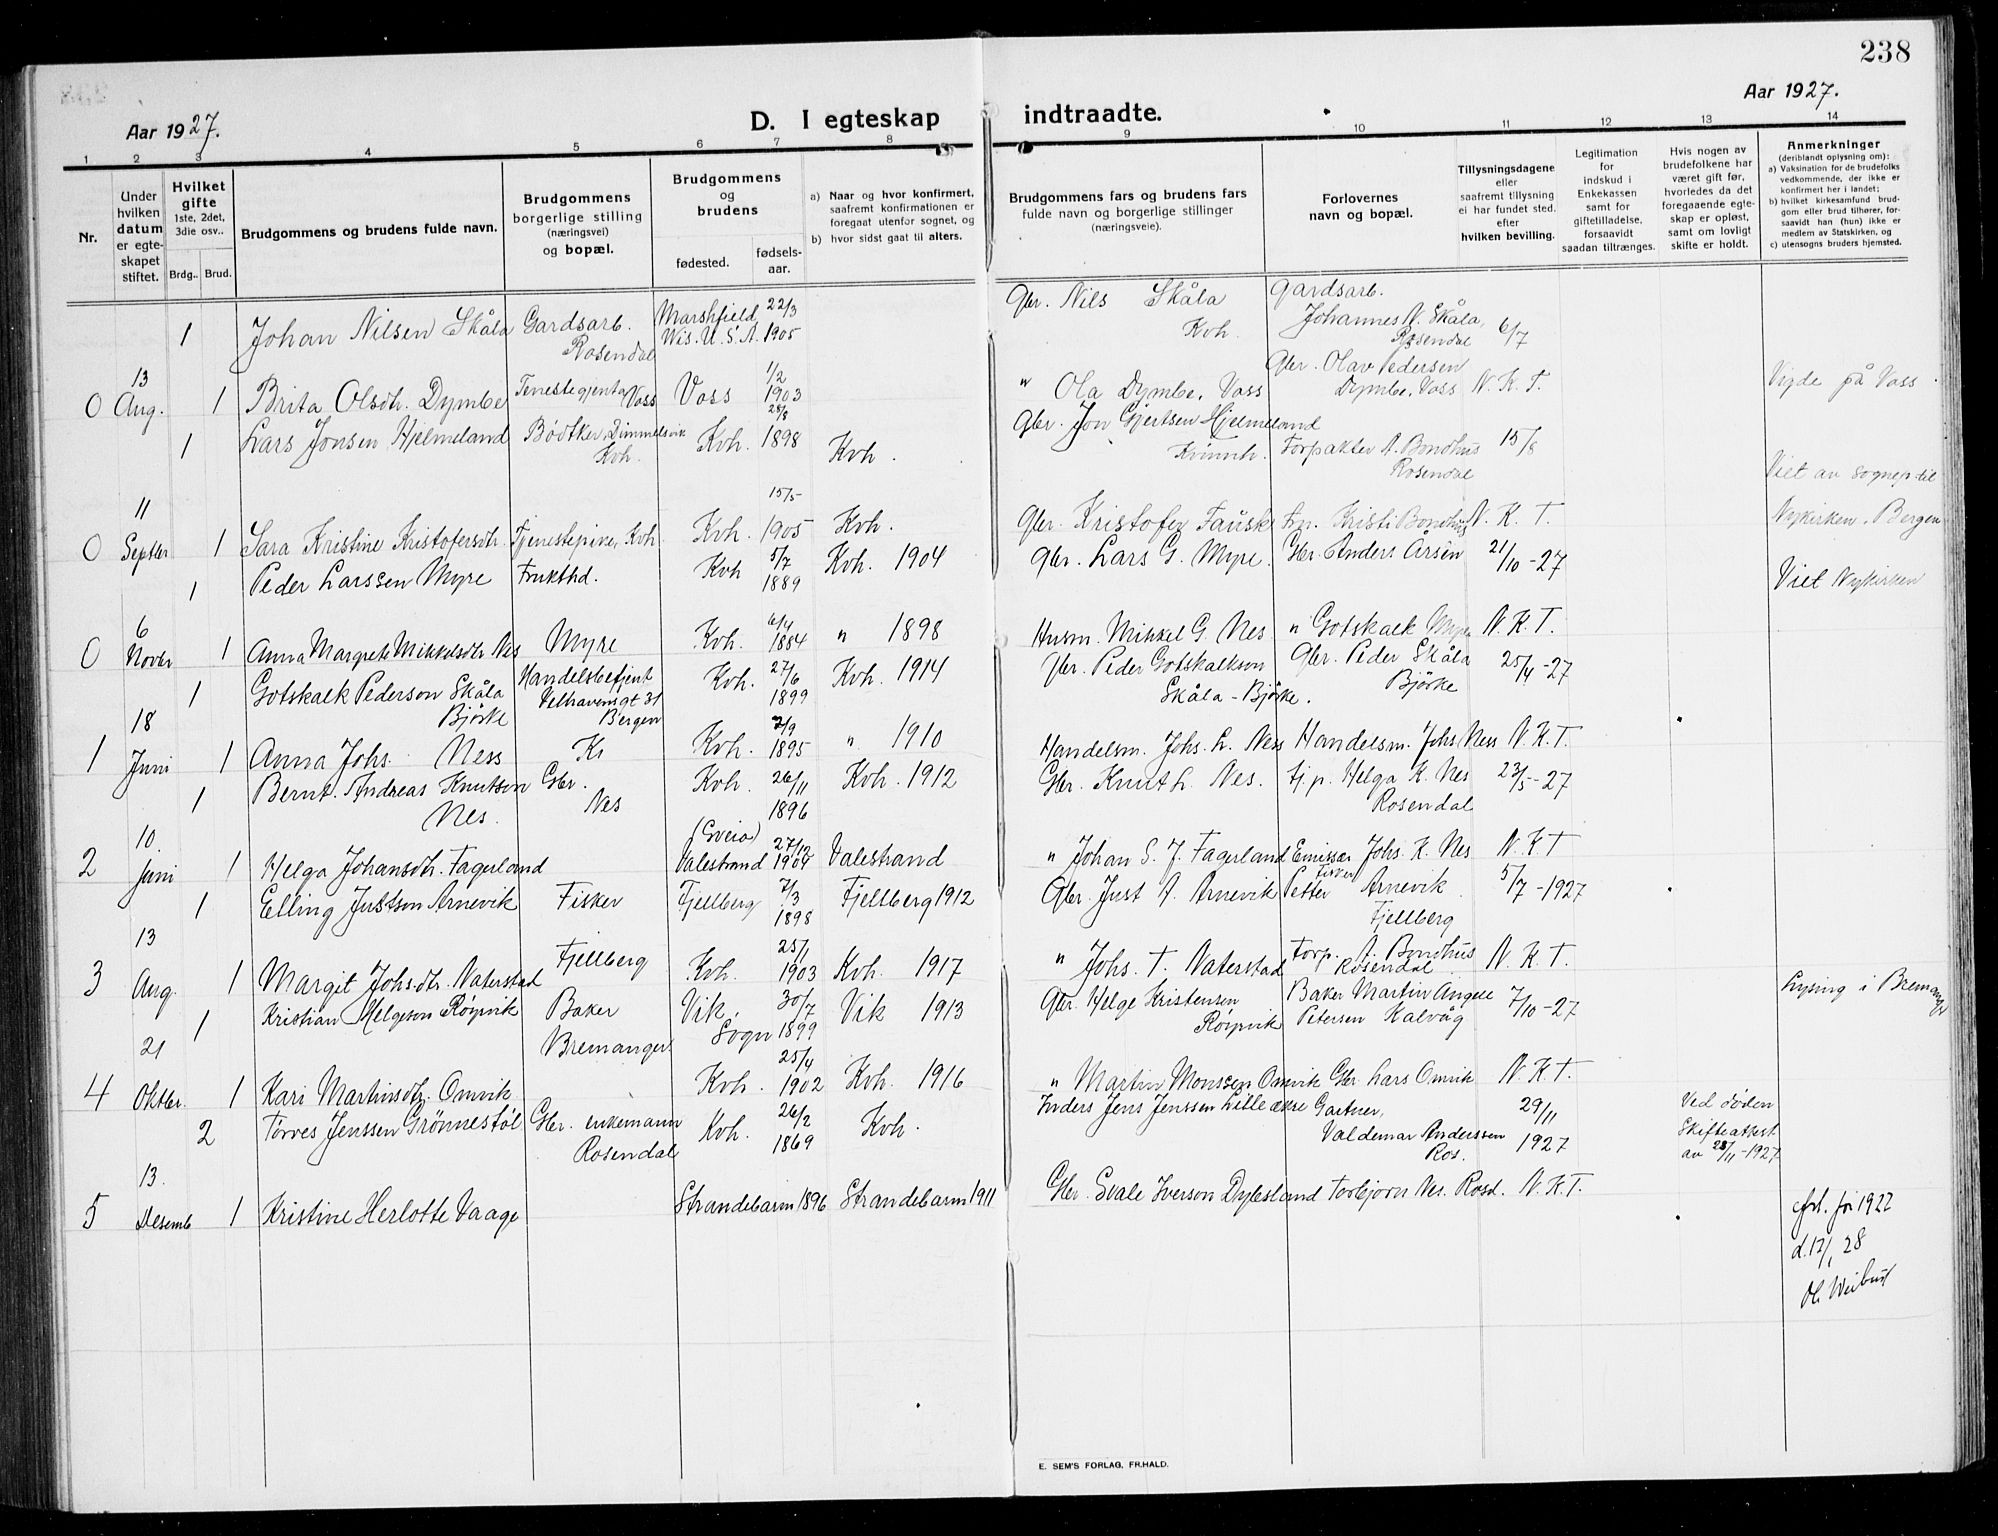 238
Aar 1927.
D. I egteskap indtraadte.
Aar 1927.
1 2 3 4 5 6 7 8 9 10 11 12 13 14
Nr.
Under hvilken datum er egte-skapet stiftet.
Hvilket gifte 1ste, 2det, 3die osv..
Brdg.. Brud.
Brudgommens og brudens fulde navn.
Brudgommens borgerlige stilling (næringsvei) og bopæl.
Brudgommens og brudens
fødested.
fødsels-aar.
a) Naar og hvor konfirmert, saafremt konfirmationen er foregaat utenfor sognet, og
b) hvor sidst gaat til alters.
Brudgommens fars og brudens fars fulde navn og borgerlige stillinger (næringsveie).
Forlovernes navn og bopæl.
Tillysningsdagene eller saafremt tillysning ei har fundet sted. efter hvilken bevilling.
Legitimation for indskud i Enkekassen samt for giftetilladelse, forsaavidt saadan tiltrænges.
Hvis nogen av brudefolkene har været gift før, hvorledes da det foregaaende egte-skap er opløst, samt om lovligt skifte er holdt.
Anmerkninger (deriblandt oplysning om):
a) Vaksination for de brudefolks vedkommende, der ikke er konfirmert her i landet;
b) hvilket kirkesamfund brud-gom eller brud tilhører, for-saavidt han (hun) ikke er medlem av Statskirken, og
c) utensogns bruders hjemsted.
1 Johan Nilsen Skåla Gardsarb. Rosendal Marshfield Wis. U.S.A. 22/3 1905 Gbr. Nils Skåla Kvh. Gardsarb. Johannes N. Skåla, Rosendal 6/7
0 13 Aug. 1 Brita Olsdtr. Dymbe Tenestegjenta Voss Voss 1/2 1903 " Ola Dymbe, Voss Gbr. Olav Pedersen Dymbe, Voss N. K. T. Vigde på Voss.
1 Lars Jonsen Hjelmeland Bödtker, Dimmelsvik Kvh. Kvh. 28/8 1898 Kvh. Gbr. Jon Gjertsen Hjelmeland Kvinnh. Forpakter A. Bondhus Rosendal 15/8
0 11 Septbr 1 Sara Kristine Kristofersdtr. Tjenestepike, Kvh. Kvh. 15/5 1905 Kvh. Gbr. Kristofer Fausk Frp. Kristi Bondhus N. K. T. Viet av sognep. til Nykirken, Bergen
1 Peder Larssen Myre Frukthd. Kvh 5/7 1889 Kvh. 1904 Gbr. Lars G. Myre. Gbr. Anders Årsen 21/10-27 Viet Nykirken
0 6 Novbr 1 Anna Margrete Mikkelsdtr Nes Myre Kvh. 6/4 1884 " 1898 Husm. Mikkel G. Nes " Gotskalk Myre N. K. T.
1 Gotskalk Pederson Skåla Bjørke Handelsbetjent Velhavensgt 31 Bergen Kvh. 27/6 1899 Kvh. 1914 Gbr. Peder Gotskalkson Skåla - Bjørke. Gbr. Peder Skåla Bjørke 25/4-27
1 18 Juni 1 Anna Johs. Ness Ks Kvh. 2/9 1895 " 1910 Handelsm. Johs. L. Ness Handelsm. Johs Ness N. K. T.
1 Bernt. Andreas Knutson Nes. Gbr. Nes Kvh. 26/11 1896 Kvh. 1912 Gbr. Knut L. Nes. tj. p. Helga K. Nes Rosendal 23/5-27
2 10. Juni 1 Helga Johansdtr. Fagerland (Sveio) Valestrand 27/12 1904 Valestrand " Johan S. J. Fagerland Emissær Johs. K. Nes N. K. T
1 Elling Justson Arnevik Fisker Fjellberg 7/3 1898 Fjellberg 1912 Gbr. Just A. Arnevik Fisker Petter Arnevik Fjellberg 5/7-1927
3 13 Aug. 1 Margit Johs.dtr. Naterstad Fjellberg Kvh. 25/1 1903 Kvh. 1917 " Johs. T. Naterstad Forp. A. Bondhus Rosendal N. K. T.
1 Kristian Helgeson Röysvik Baker Bremanger Vik, Sogn 30/7 1899 Vik 1913 Gbr. Helge Kristensen Röysvik Baker Martin Angell Petersen Kalvåg 7/10-27 Lysing i Bremanger
4 21 Oktbr. 1 Kari Martinsdtr. Omvik Kvh. 25/4 1902 Kvh. 1916 " Martin Monssen Omvik Gbr. Lars Omvik N. K. T.
2 Torres Jenssen Grönnestöl Gbr. enkemann Rosendal Kvh. 26/2 1869 Kvh. Inders Jens Jenssen Lilleækre Gartner, Valdemar Anderssen Ros. 29/11 1927 Ved døden Skifteattest av 28/11-1927
5 13. Desemb 1 Kristine Herlotte Vaage Strandebarm 1896 Strandebarm 1911 Gbr. Svale Iverson Dylesland Torbjørn Nes. Rosd. N. K. T.
for 1927
d. 12/1 28
E. SEM'S FORLAG, FR.HALD.